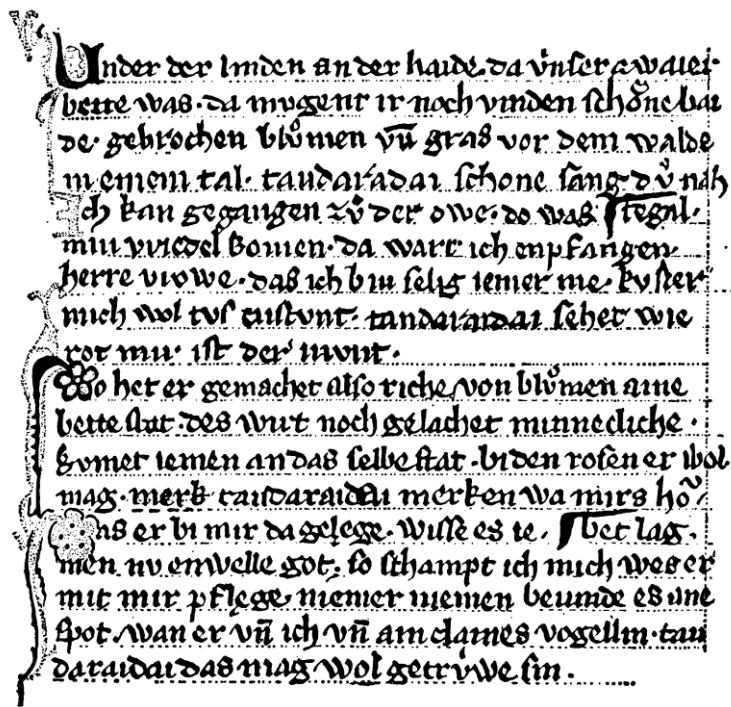 Under der linden an der haide. da vnser zwaier
bette was. da mugent ir noch vinden schone bai
de. gebrochen blůmen vn̄ gras vor dem walde
in einem tal. tandaradai schone sang dů nah
Ich kan gegangen zů der owe. do was ¶tegal.
min vriedel komen. da wart ich enpfangen.
herre vrowe. das ich bin selig iemer me. kuster
mich wol tusentstunt. tandaraidai sehet wie
rot mir ist der munt.
Do het er gemachet also riche von blůmen aine
bettestat. des wirt noch gelachet minnecliche.
kumet iemen an das selbe stat. bi den rosen er wol
mag. merk tandaraidai merken wa mirs hŏ
Das er bi mir da gelege. wisse es ie. ¶bet lag.
men. nv enwelle got. so schampt ich mich wes er
mit mir pflege. niemer niemen beuinde es ane
spot. wan er vn̄ ich vn̄ ain claines vogellin. tan
daraidai das mag wol getrůwe sin.